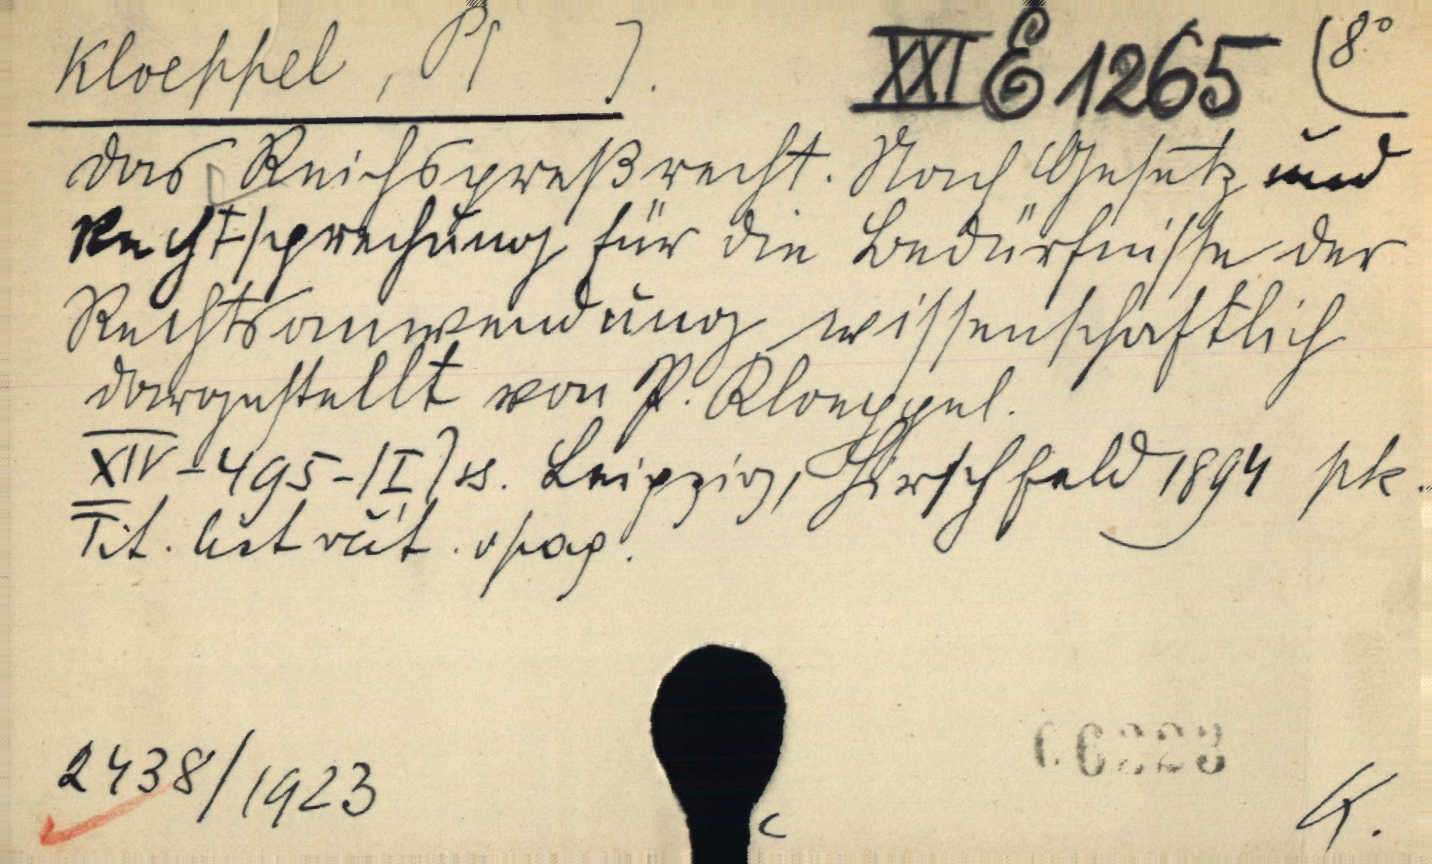 Kloeppel, P[ ]. XXI E 1265 (8°
Das Reichspreßrecht. Nach Gesetz und
Rechtsprechung für die Bedürfnisse der
Rechtsanwendung wissenschaftlich
dargestellt von P. Kloeppel.
XIV-495-[I] s. Leipzig, Hirschfeld 1894 pk.
Tit.
2438/1923
c
K.